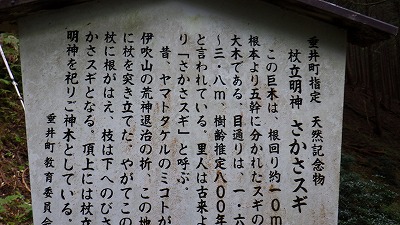 垂井町指定　天然記念物
杖立明神　さかさスギ
この巨木は、根回り約10m
根本より五幹に分かれたスギの
大木である。目通りは、一・六
〜三・八m、樹齢推定八00年
と言われている。里人は古来よ
り「さかさスギ」と呼ぶ。
昔、ヤマトタケルのミコトが
伊吹山の荒神退治の折、この地
に杖を突き立てた。やがてこの
杖に根がはえ、枝は下へのびさ
かさスギとなる。頂上には杖立
明神を祀りご神木としている。
垂井町教育委員会